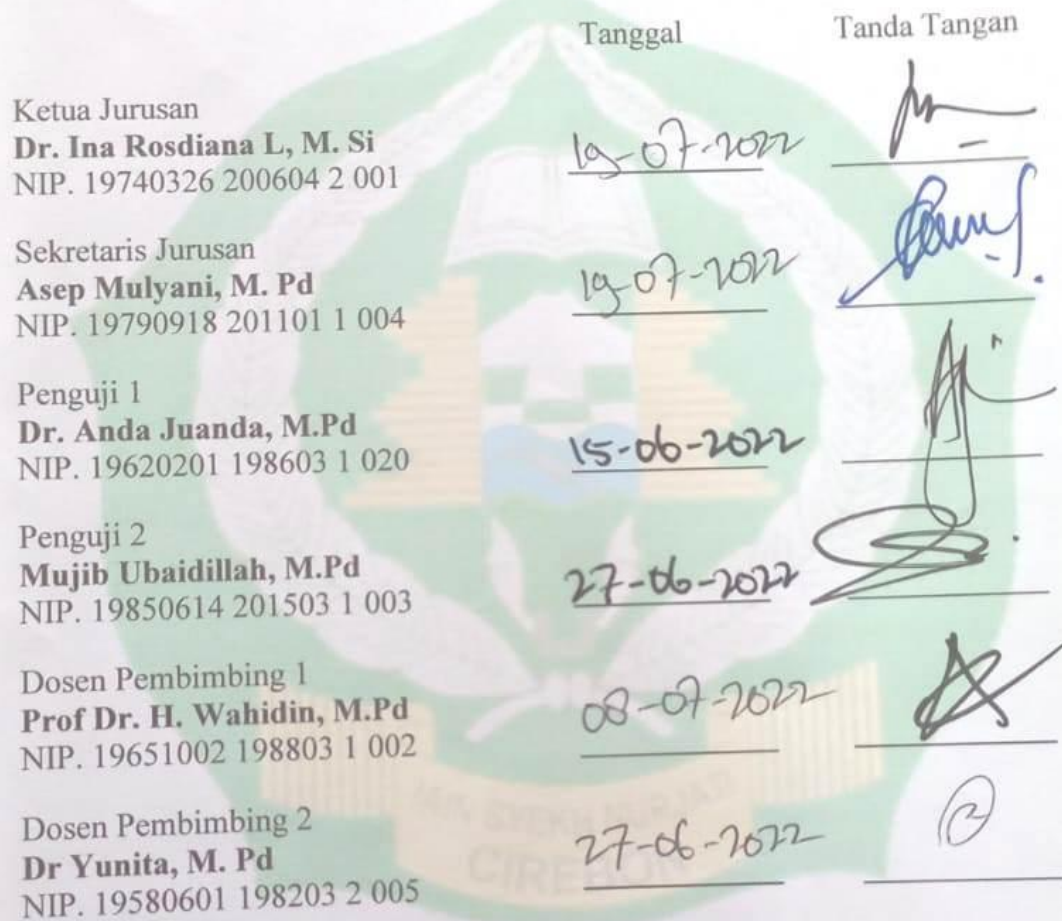 Tanggal Tanda Tangan
Ketua Jurusan
Dr. Ina Rosdiana L, M. Si
NIP. 19740326 200604 2 001
19-07-2022
Sekretaris Jurusan
Asep Mulyani, M. Pd
NIP. 19790918 201101 1 004
19-07-2022
Penguji 1
Dr. Anda Juanda, M.Pd
NIP. 19620201 198603 1 020
15-06-2022
Penguji 2
Mujib Ubaidillah, M.Pd
NIP. 19850614 201503 1 003
27-06-2022
Dosen Pembimbing 1
Prof Dr. H. Wahidin, M.Pd
NIP. 19651002 198803 1 002
08-07-2022
Dosen Pembimbing 2
Dr Yunita, M. Pd
NIP. 19580601 198203 2 005
27-06-2022
IAIN SYEKH NURJATI
CIREBON